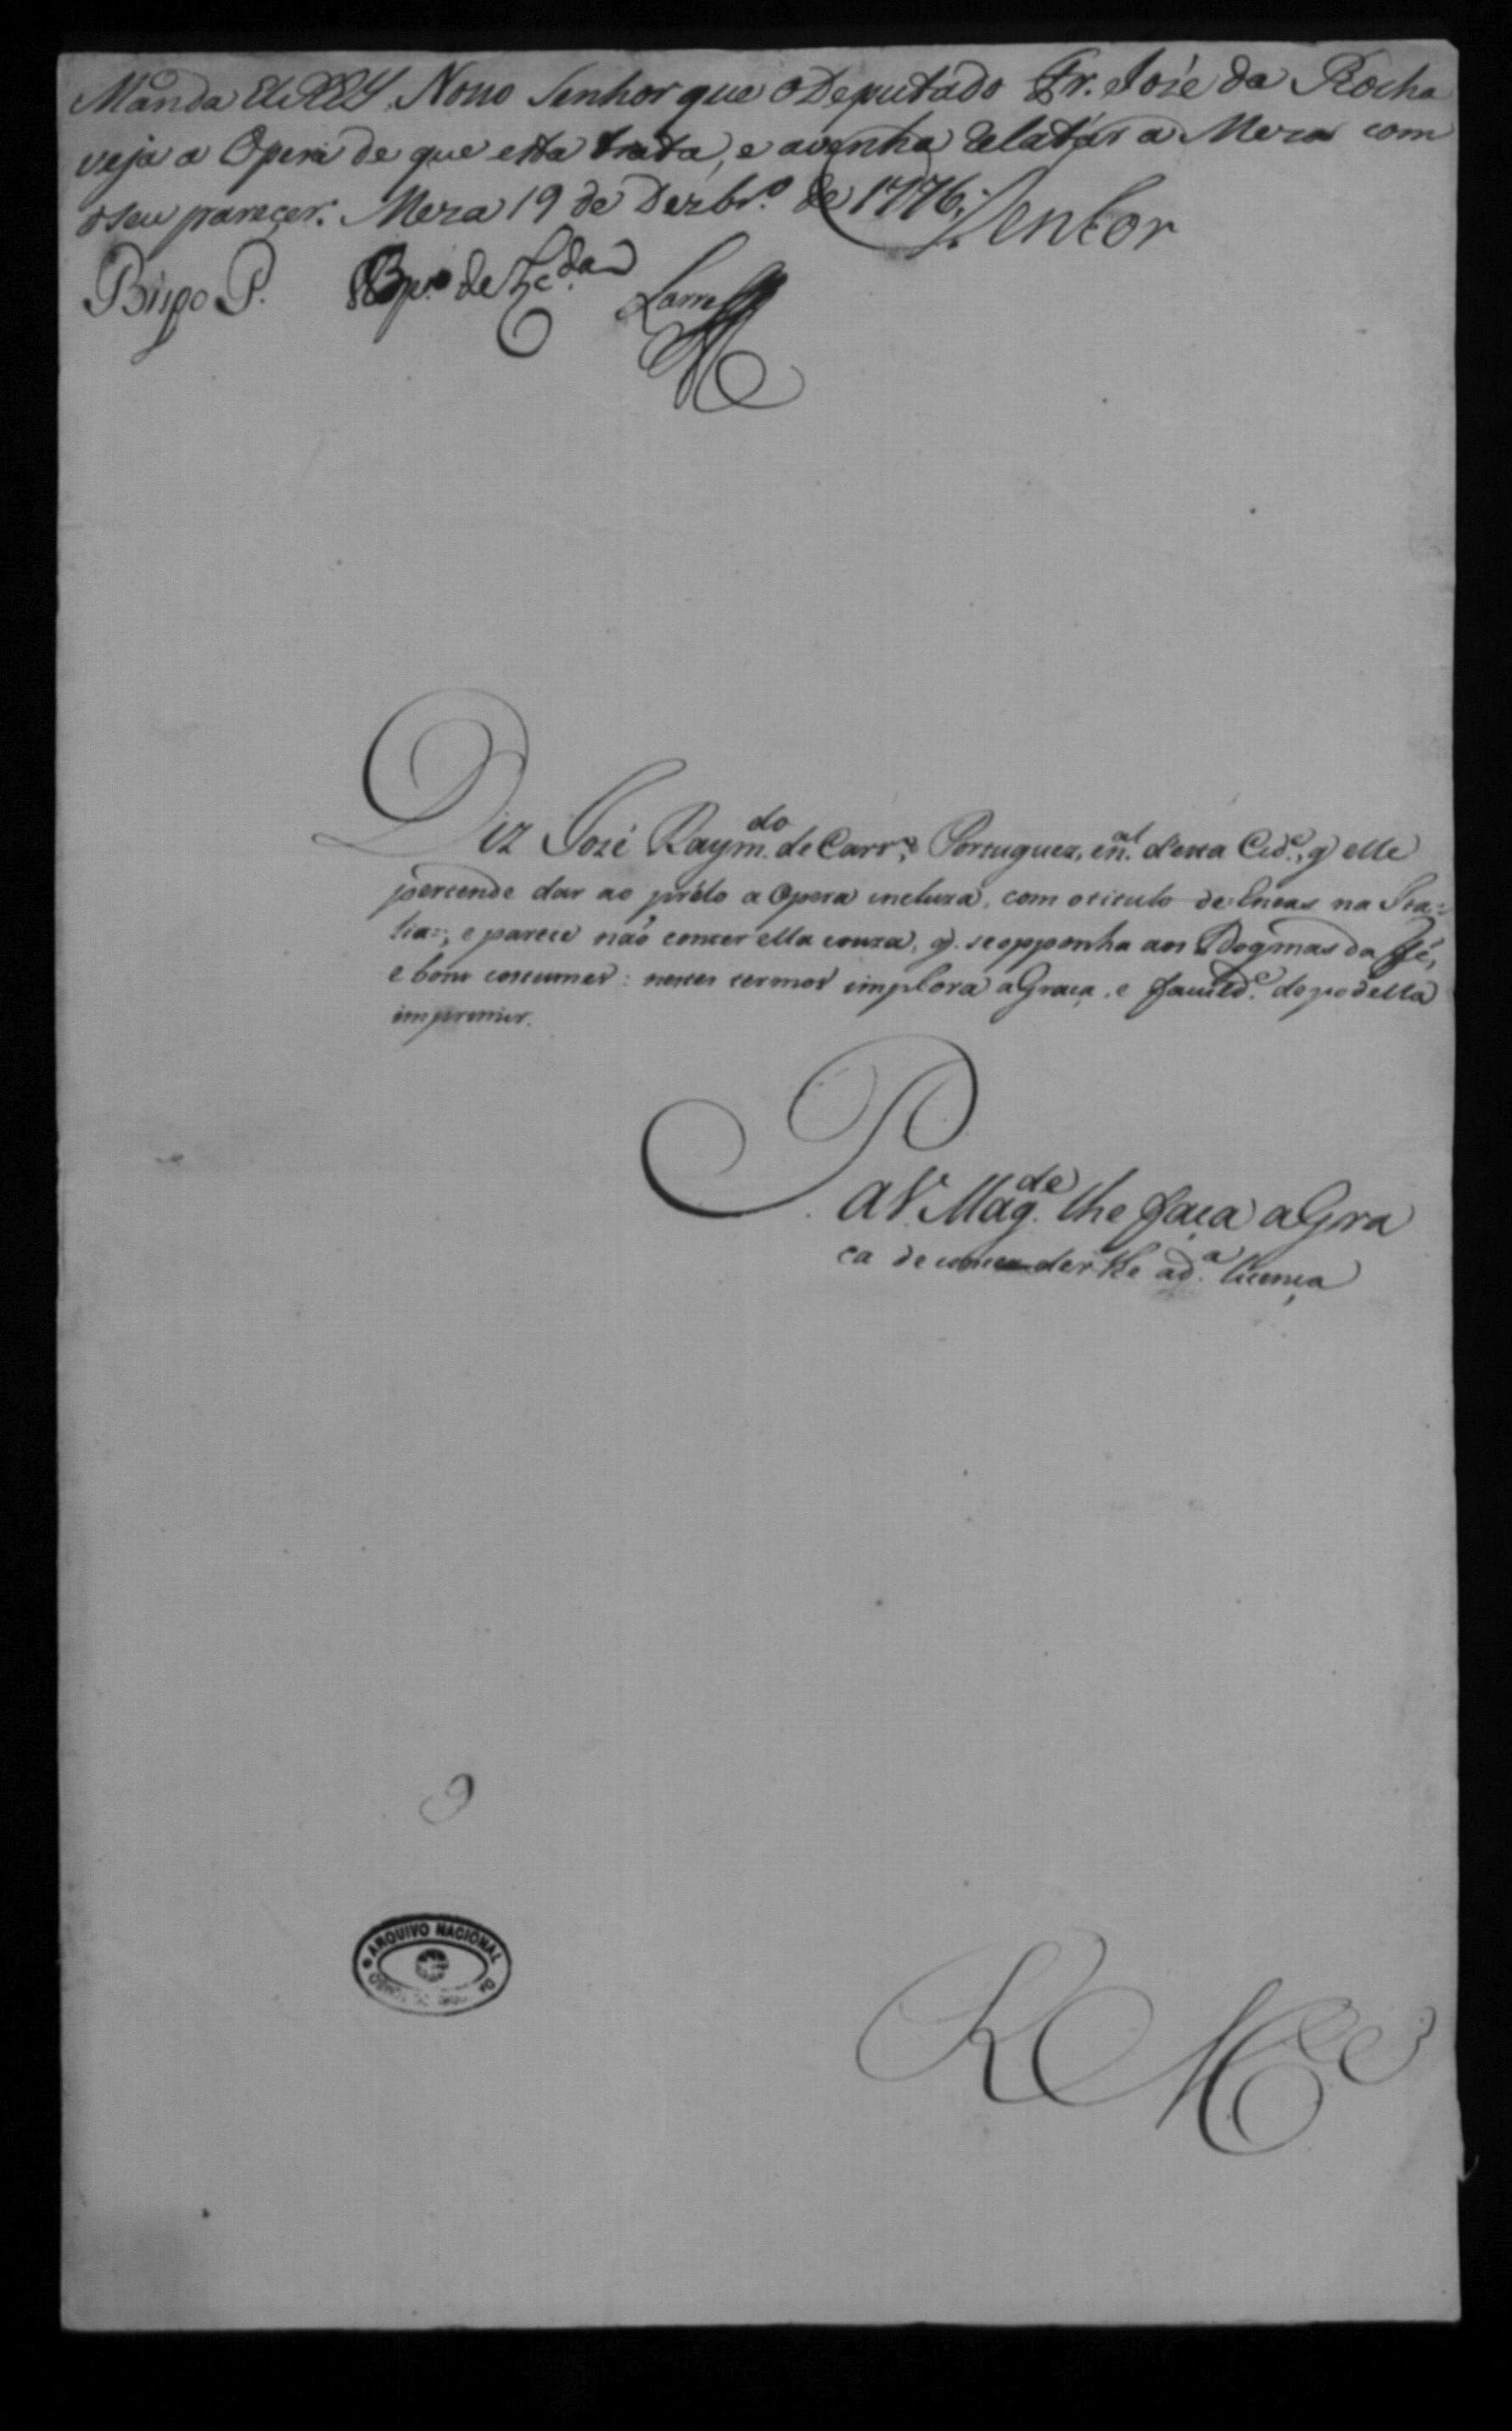 Manda ElREY Noso Senhor que o Deputado Fr. José da Rocha
veja a Opera de que esta trata, e avenha Relatar a Meza com
o seu parecer. Meza 19 de Dezbr.º de 1776.
Senhor
Bispo P.
Diz José Raym.do de Carv.º Portuguez, e n.al desta Cid.e, q elle
pertende dar ao prélo a Opera incluza, com o titulo de Eneas na Ita=
lia=, e parece não conter ella couza, q. se opponha aos Dogmas da Fé,
e bons costumes: nestes termos implora a Graça, e faculd.e de poder ella
imprimir.
P
a V. Mag.de lhe faça a Gra
ça de conceder lhe a d.a licença
ARQUIVO NACIONAL
E R M.ce